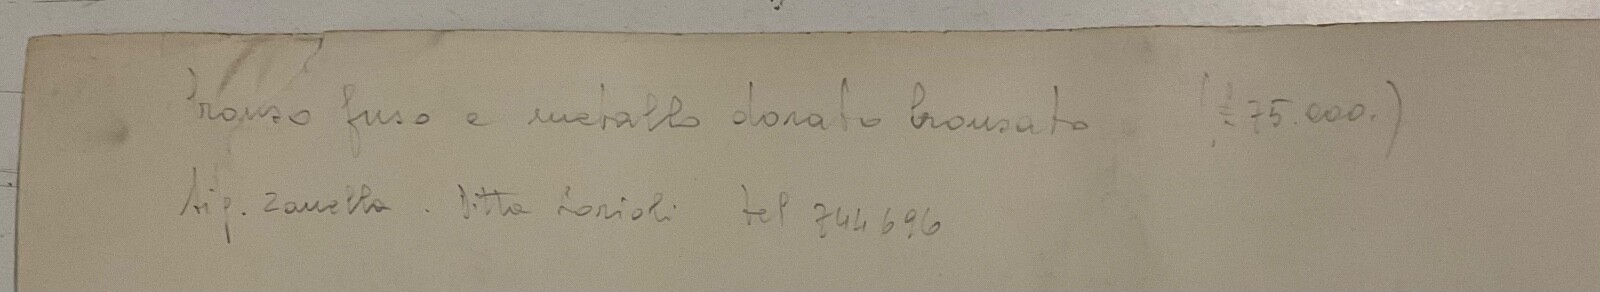 bronzo fuso e metallo dorato bronzato (£ 75.000.)
Sig. Zanella. Ditta Lorioli tel 744696